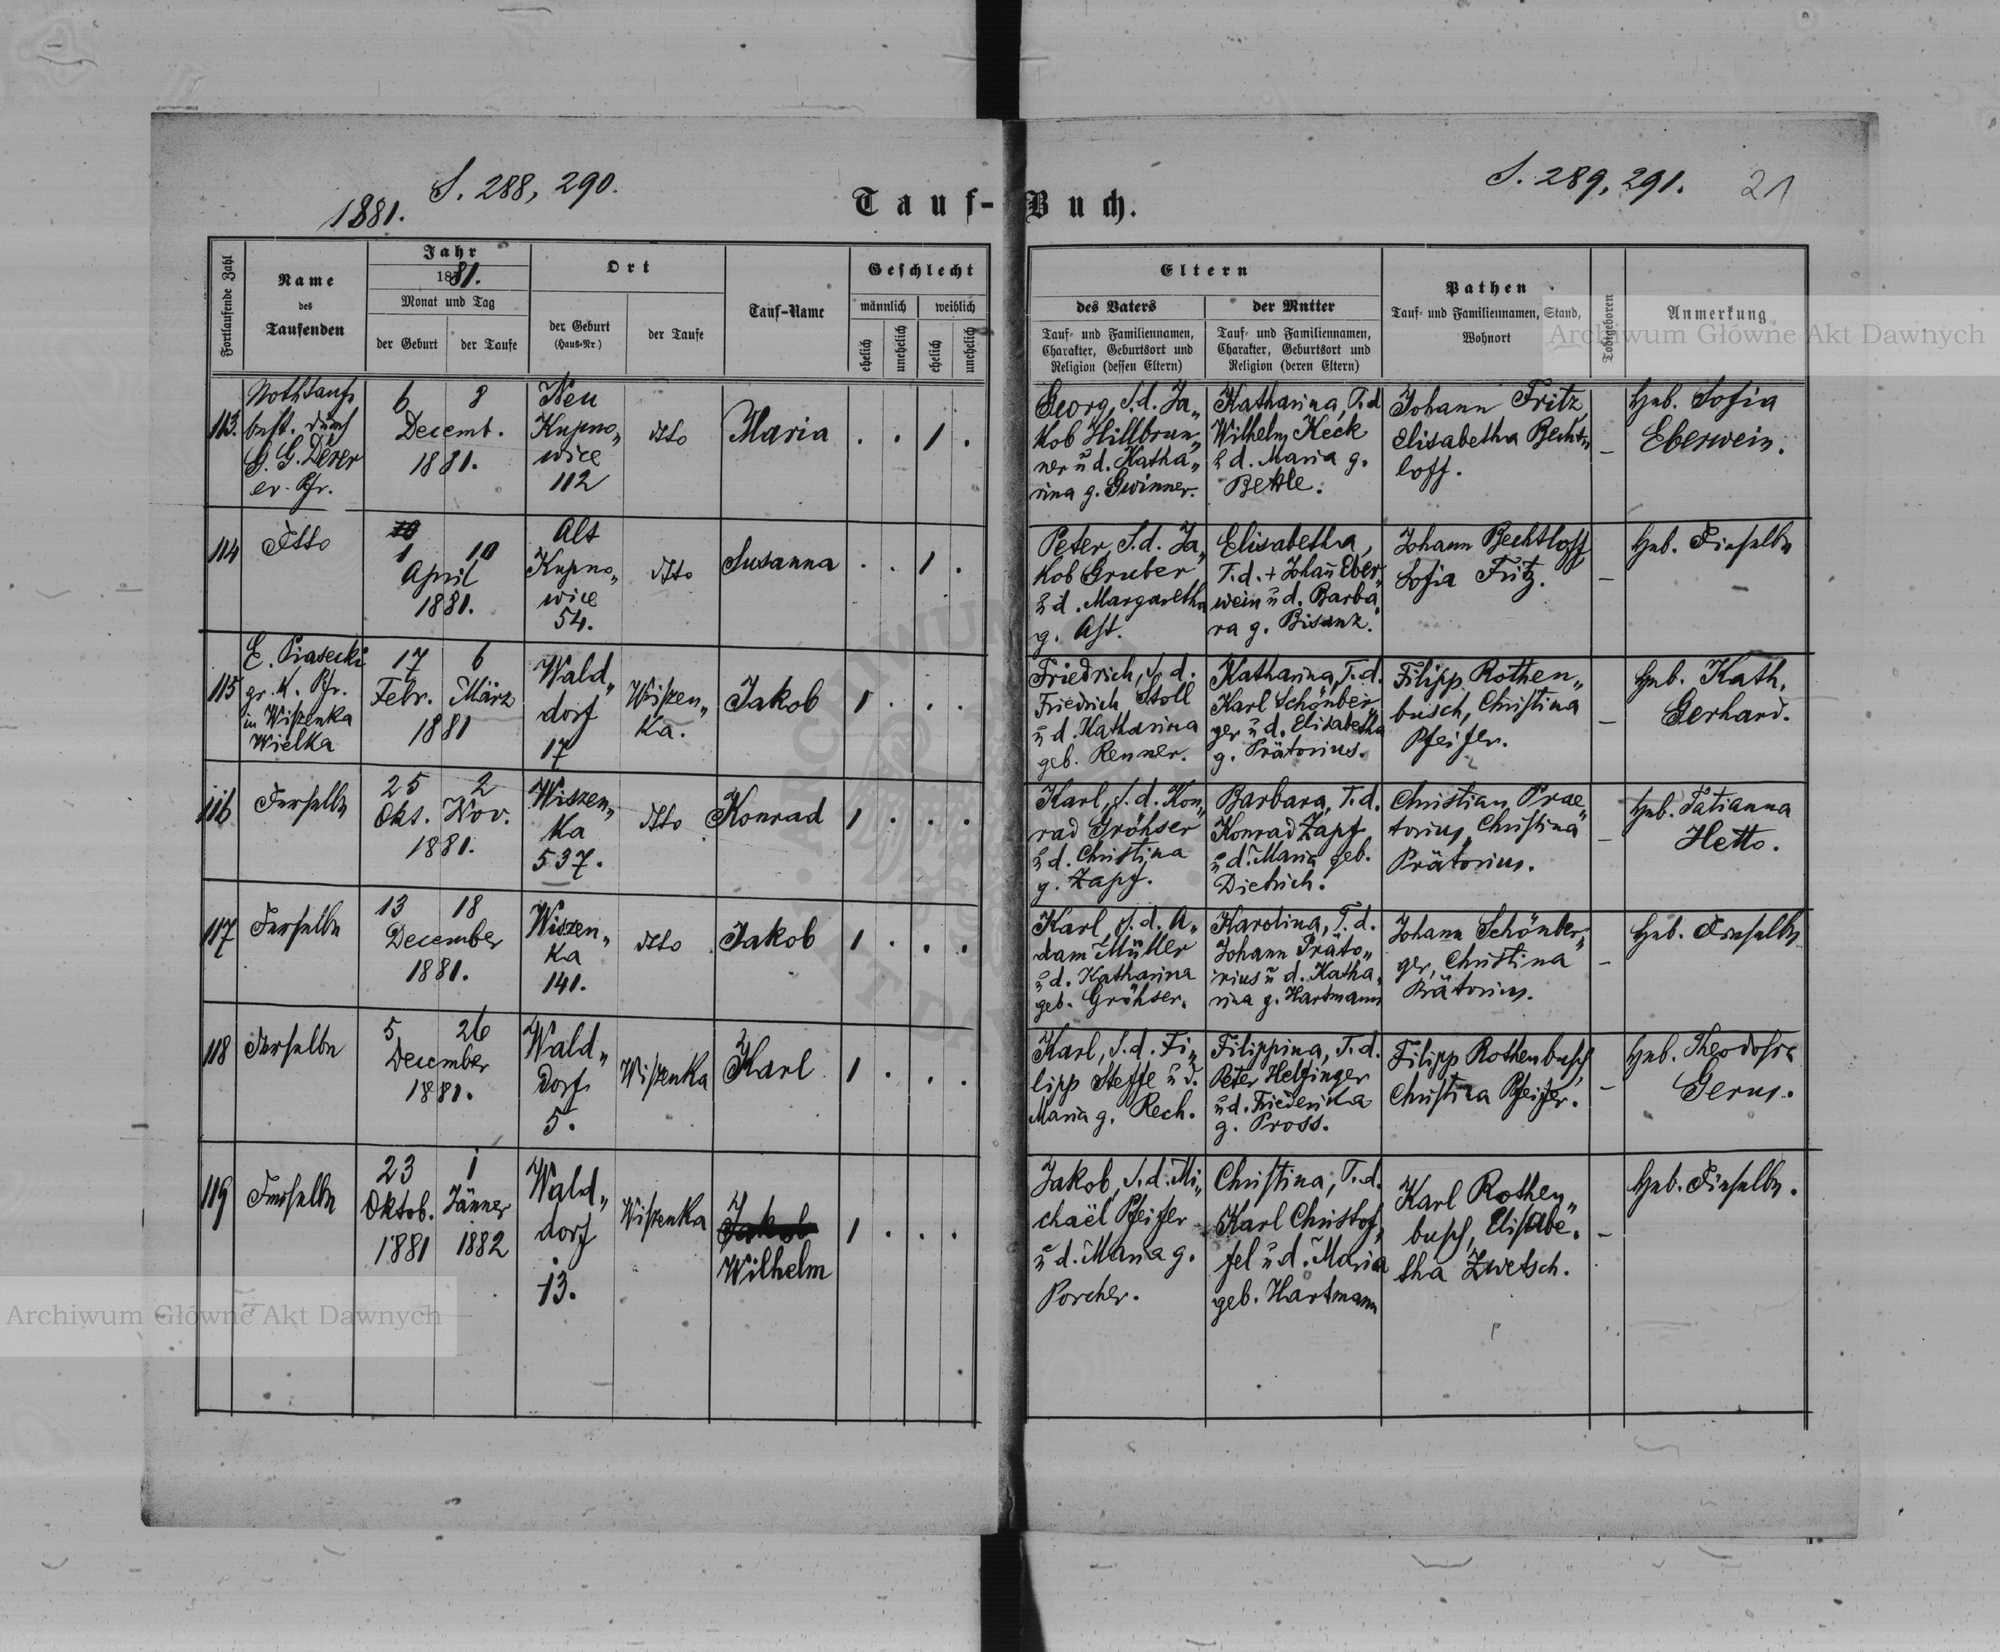 S. 288, 290.
1881.
S. 289, 291.
21
Tauf-Buch.
Fortlaufende Zahl
Name
des
Taufenden
Jahr
1881.
Monat und Tag
der Geburt
der Taufe
Ort
der Geburt
(Haus-Nr.)
der Taufe
Tauf-Name
Geschlecht
männlich
weiblich
ehelich
unehelich
ehelich
unehelich
Eltern
des Vaters
Tauf- und Familiennamen,
Charakter, Geburtsort und
Religion (dessen Eltern)
der Mutter
Tauf- und Familiennamen,
Charakter, Geburtsort und
Religion (deren Eltern)
Pathen
Tauf- und Familiennamen, Stand,
Wohnort
Todtgeboren
Anmerkung
113.
Nothtaufe
best. durch
G. G. Dexer
ev. Pfr.
6 8
Decemb.
1881.
Neu
Kupno„
wice
112
dtto
Maria
. . 1 .
Georg, S. d. Ja„
kob Hillbrun„
ner u d. Katha„
rina g. Gwinner.
Katharina, T. d
Wilhelm Keck
u d. Maria g.
Betkle.
Johann Fritz,
Elisabetha Becht„
loff.
–
Heb. Sofia
Eberwein.
114
Dtto
10
1 10
April
1881.
Alt
Kupno„
wice
54.
dtto
Susanna
. . 1 .
Peter, S. d. Ja„
kob Gruber
u d. Margaretha
g. Ast.
Elisabetha,
T. d. + Johan̄ Eber„
wein u d. Barba„
ra g. Bisanz.
Johann Bechtloff
Sofia Fritz.
–
Heb. Dieselbe
115
E. Piasecki
gr. k. Pfr.
in Wiszenka
Wielka
17 6
Febr. März
1881
Wald„
dorf
17
Wiszen„
ka.
Jakob
1 . . .
Friedrich, S. d.
Friedrich Stoll
u d. Katharina
geb. Renner.
Katharina, T. d.
Karl Schönber„
ger u d. Elisabetha
g. Prätorius.
Filipp Rothen„
busch, Christina
Pfeifer.
–
Heb. Kath.
Gerhard.
116
Derselbe
25 2
Okt. Nov.
1881.
Wiszen„
ka
537.
dtto
Konrad
1 . . .
Karl, S. d. Kon„
rad Gröhser
u d. Christina
g. Zapf.
Barbara, T. d.
Konrad Zapf
u d. Maria geb.
Dietrich.
Christian Prae„
torius, Christina
Prätorius.
–
Heb. Tatianna
Hetto.
117
Derselbe
13 18
December
1881.
Wiszen„
ka
141.
dtto
Jakob
1 . . .
Karl, S. d. A„
dam Müller
u d. Katharina
geb. Gröhser.
Karolina, T. d.
Johann Präto„
rius u d. Katha„
rina g. Hartmann
Johann Schönber„
ger, Christina
Prätorius.
–
Heb. Dieselbe
118
Derselbe
5 26
December
1881.
Wald„
dorf
5.
Wiszenka
Karl
1 . . .
Karl, S. d. Fi„
lipp Steffe u d.
Maria g. Rech.
Filippina, T. d.
Peter Helfinger
u d. Friederika
g. Pross.
Filipp Rothenbusch,
Christina Pfeifer.
–
Heb. Theodosia
Gerus.
119
Derselbe
23 1
Oktob. Jänner
1881 1882
Wald„
dorf
13.
Wiszenka
Jakob
Wilhelm
1 . . .
Jakob, S. d. Mi„
chaël Pfeifer
u d. Maria g.
Porcher.
Christina, T. d.
Karl Christof„
fel u d. Maria
geb. Hartmann
Karl Rothen„
busch, Elisabe„
tha Zwetsch.
–
Heb. Dieselbe.
Archiwum Główne Akt Dawnych
Archiwum Główne Akt Dawnych